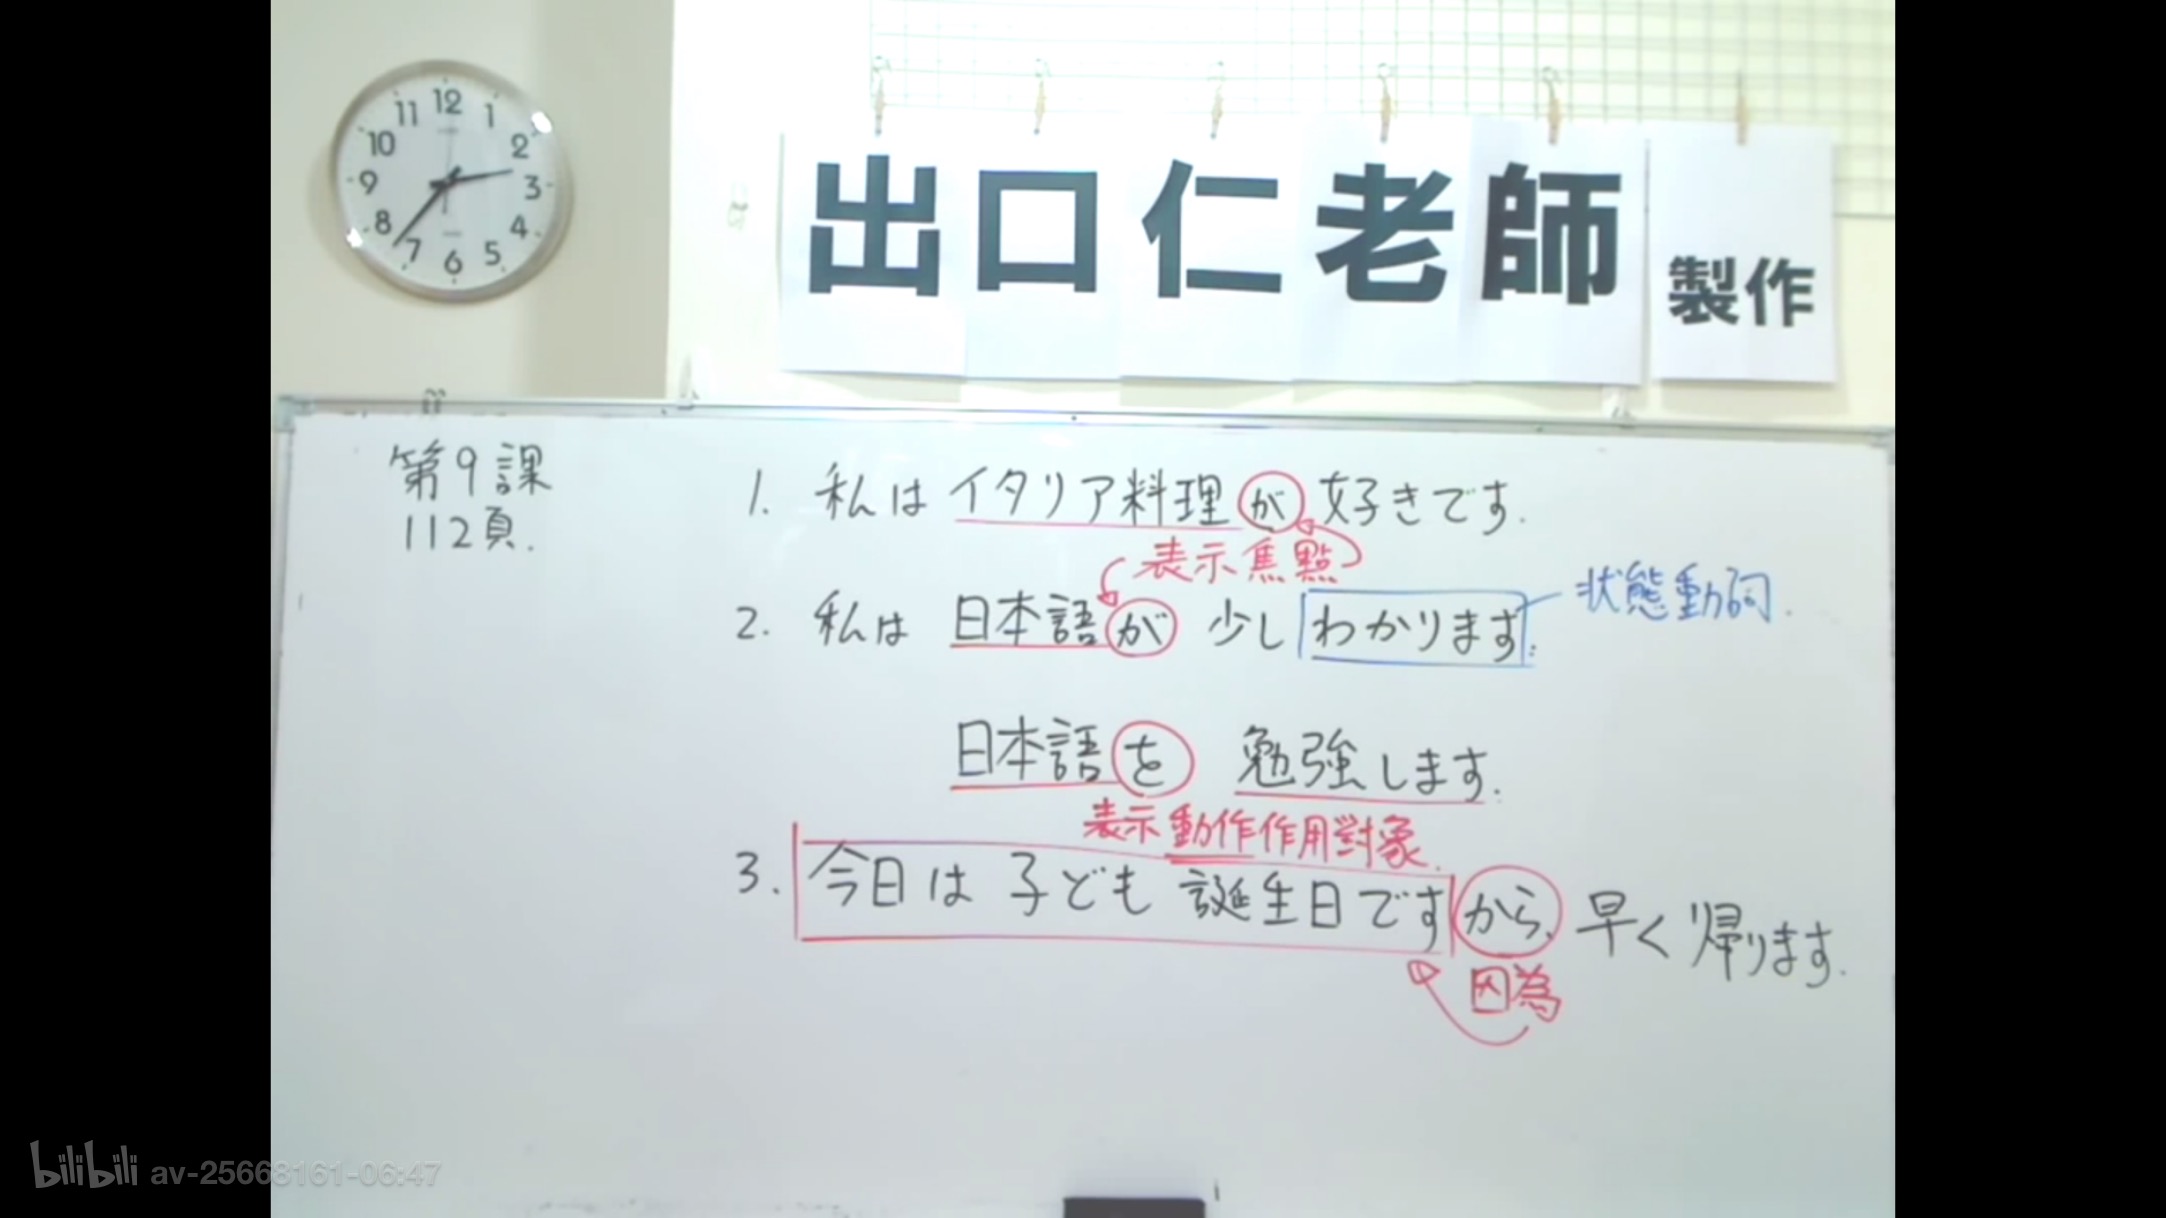 12
11 1
10 2
9 3
8 4
7 5
6
出口仁老師
製作
第9課
112頁.
1. 私は イタリア料理 が 好きです.
表示焦點
状態動詞.
2. 私は 日本語 が 少し わかります.
日本語 を 勉強します.
表示動作作用對象.
3. 今日は 子ども 誕生日です から、早く 帰ります.
因為
bilibili av-25668161-06:47